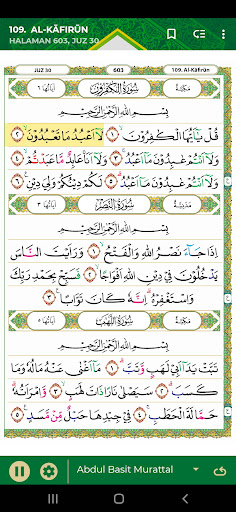 109. AL-KĀFIRŪN
HALAMAN 603, JUZ 30
JUZ 30 603 109. Al-Kāfirūn
مكية سورة الكافرون آياتها ٦
بِسْمِ اللهِ الرَّحْمٰنِ الرَّحِيْمِ
قُلْ يٰٓاَيُّهَا الْكٰفِرُوْنَ ۙ ١ لَآ اَعْبُدُ مَا تَعْبُدُوْنَ ۙ ٢
وَلَآ اَنْتُمْ عٰبِدُوْنَ مَآ اَعْبُدُ ۚ ٣ وَلَآ اَنَا۠ عَابِدٌ مَّا عَبَدْتُّمْ ۙ ٤
وَلَآ اَنْتُمْ عٰبِدُوْنَ مَآ اَعْبُدُ ۗ ٥ لَكُمْ دِيْنُكُمْ وَلِيَ دِيْنِ ࣖ ٦
مدنية سورة النصر آياتها ٣
بِسْمِ اللهِ الرَّحْمٰنِ الرَّحِيْمِ
اِذَا جَاۤءَ نَصْرُ اللهِ وَالْفَتْحُ ۙ ١ وَرَاَيْتَ النَّاسَ
يَدْخُلُوْنَ فِيْ دِيْنِ اللهِ اَفْوَاجًا ۙ ٢ فَسَبِّحْ بِحَمْدِ رَبِّكَ
وَاسْتَغْفِرْهُ ۗ اِنَّهٗ كَانَ تَوَّابًا ࣖ ٣
مكية سورة اللهب آياتها ٥
بِسْمِ اللهِ الرَّحْمٰنِ الرَّحِيْمِ
تَبَّتْ يَدَآ اَبِيْ لَهَبٍ وَّتَبَّ ۗ ١ مَآ اَغْنٰى عَنْهُ مَالُهٗ وَمَا
كَسَبَ ۗ ٢ سَيَصْلٰى نَارًا ذَاتَ لَهَبٍ ۙ ٣ وَّامْرَاَتُهٗ ۗ
حَمَّالَةَ الْحَطَبِ ۚ ٤ فِيْ جِيْدِهَا حَبْلٌ مِّنْ مَّسَدٍ ࣖ ٥
Abdul Basit Murattal